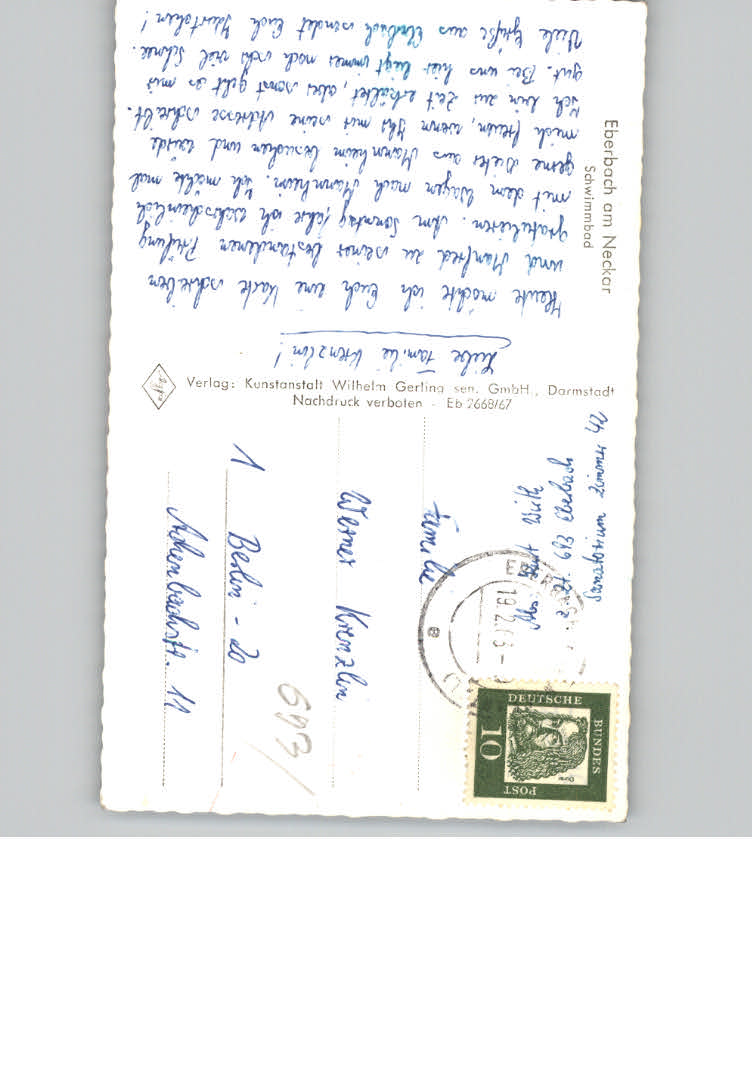 Eberbach am Neckar
Schwimmbad
Liebe Familie Krenzlin!
Heute möchte ich Euch eine Karte schreiben
und Manfred zu seiner bestandenen Prüfung
gratulieren. Am Sonntag fahre ich wahrscheinlich
mit dem Wagen nach Mannheim. Ich möchte mal
gerne Dieter aus Mannheim besuchen und würde
mich freuen, wenn Ihr mir seine Adresse schreibt.
Ich bin zur Zeit erkältet, aber sonst geht es mir
gut. Bei uns hier liegt immer noch sehr viel Schnee.
Viele Grüße aus Eberbach sendet Euch
Verlag: Kunstanstalt Wilhelm Gerling sen. GmbH., Darmstadt
Nachdruck verboten - Eb 2668/67
Abs. Wirtz
z. Zt. 693 Eberbach
Zimmer 42
DEUTSCHE
BUNDES
POST
10
Dürer
19.2.
e
Familie
Werner Krenzlin
1 Berlin-20
Achenbachstr. 11
693